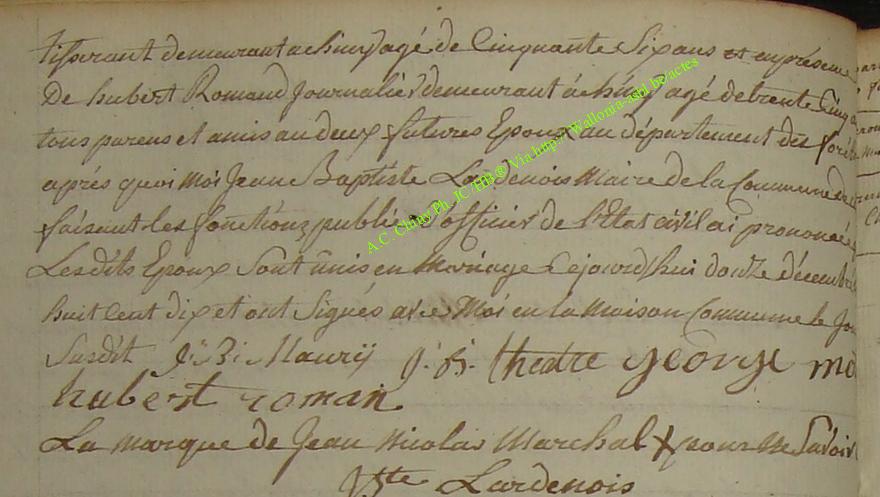 tisserant demeurant a chiny agé de Cinquante Six ans et en présence
De hubert Romand Journalier demeurant à chiny agé de trente Cinq
tous parens et amis au deux futures Epoux au département des forêts
aprés quoi Moi Jean Baptiste Lardenois Maire de la Commune de
faisant les fonctions public d'officier de l'Etat civil ai prononcé
Les dits Epoux Sont ûnis en Mariage Cejourd'hui douze décembre
huit Cent dix et ont Signés avec Moi en la Maison Commune le Jour
Susdit J: B: Maury J. B. theatre george
hubert roman
La marque de Jean Nicolas Marchal X pour ne Savoir
Bte Lardenois
A.C. Chiny Ph. JC Hff @ Via http://Wallonia-asbl.be/actes